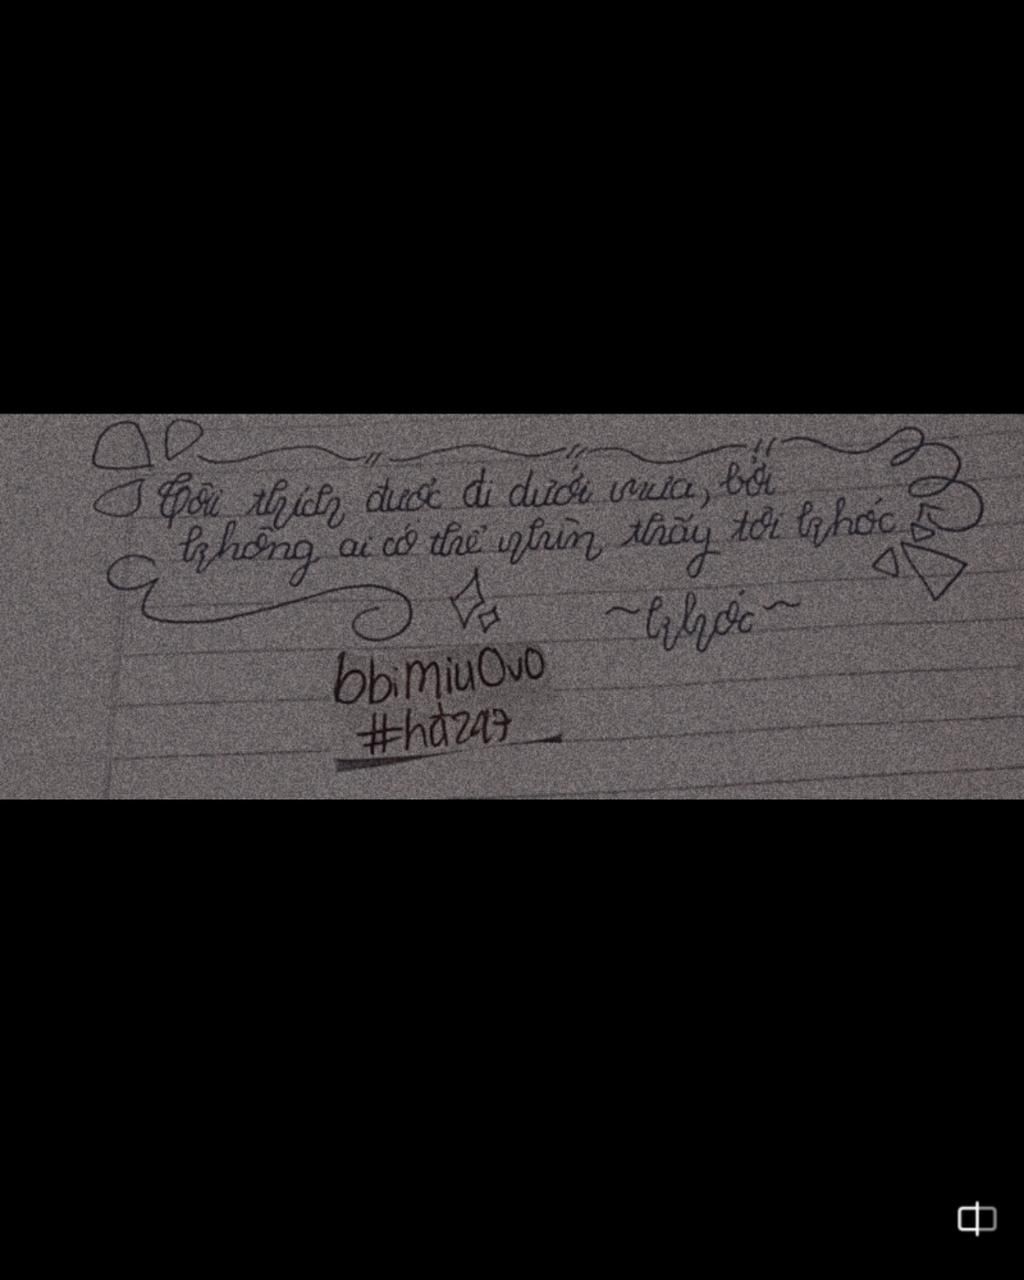 Tôi thích được đi dưới mưa, bởi
không ai có thể nhìn thấy tôi khóc
~khóc~
bbimiuOvO
#hdz247